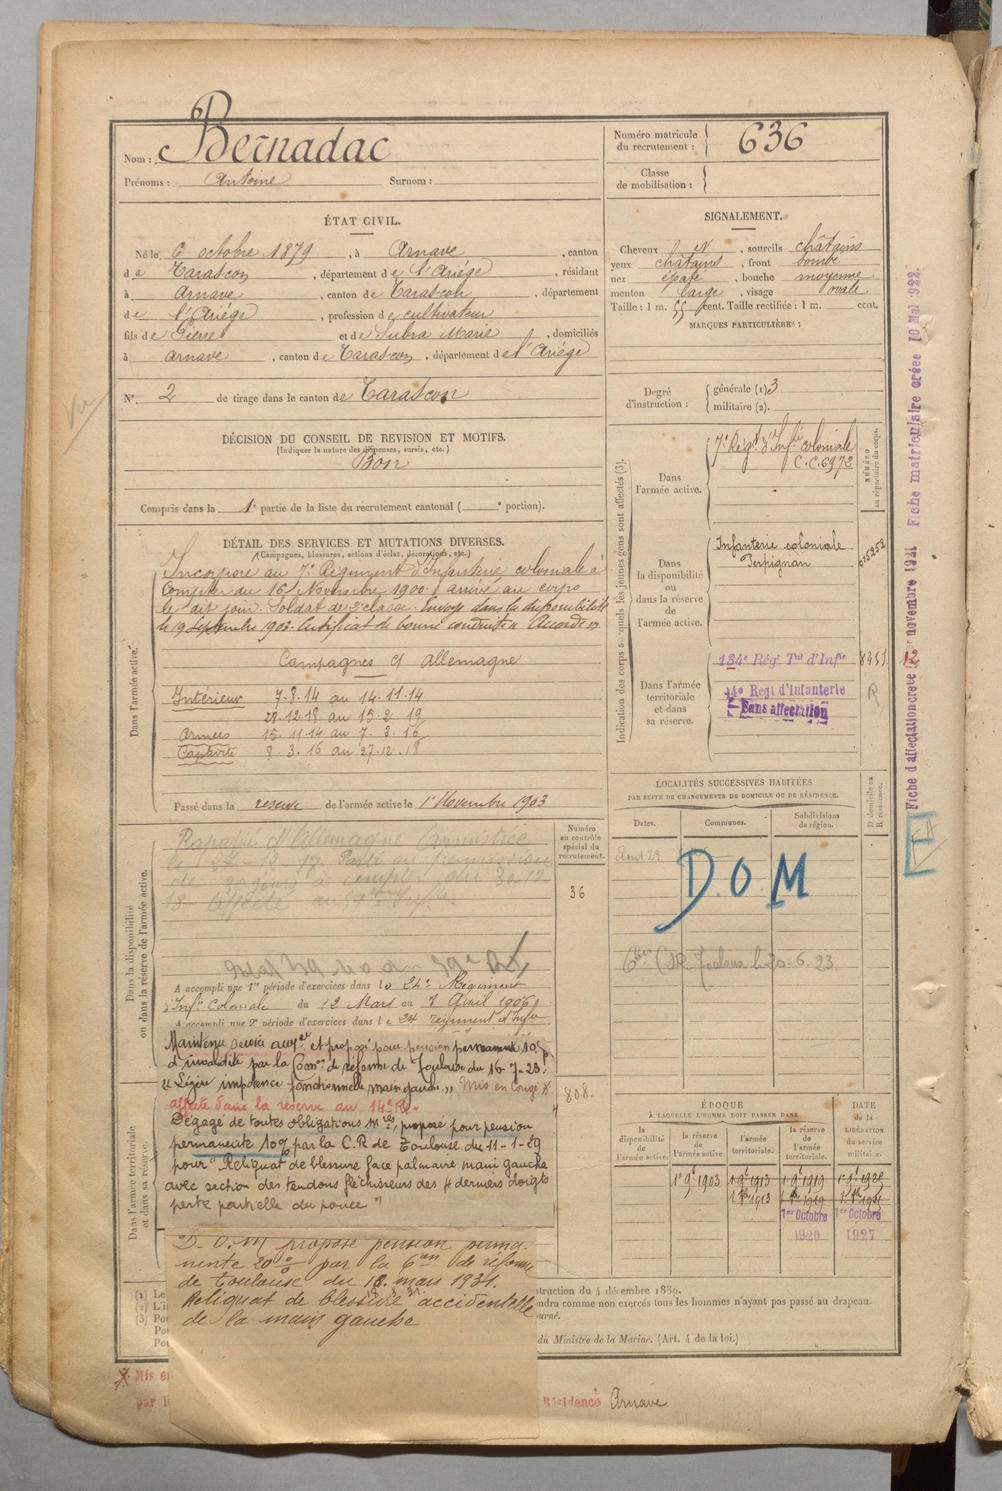 Nom : Bernadac
Prénoms : Antoine Surnom :
Numéro matricule du recrutement : 636
Classe de mobilisation :
ÉTAT CIVIL.
Né le 6 octobre 1879, à Arnave, canton
de Tarascon, département de l'Ariége, résidant
à Arnave, canton de Tarascon, département
de l'Ariége, profession de cultivateur
fils de Pierre et de Subra Marie, domiciliés
à Arnave, canton de Tarascon, département de l'Ariége
N° 2 de tirage dans le canton de Tarascon
SIGNALEMENT.
Cheveux N, sourcils châtains
yeux châtains, front bombé
nez épaté, bouche moyenne
menton large, visage ovale
Taille : 1 m. 55 cent. Taille rectifiée : 1 m. cent.
MARQUES PARTICULIÈRES :
Degré d'instruction : générale (1) 3
militaire (2).
DÉCISION DU CONSEIL DE REVISION ET MOTIFS.
(Indiquer la nature des dispenses, sursis, etc.)
Bon
Compris dans la 1e partie de la liste du recrutement cantonal ( e portion).
DÉTAIL DES SERVICES ET MUTATIONS DIVERSES.
(Campagnes, blessures, actions d'éclat, décorations, etc.)
Dans l'armée active.
Incorporé au 7e Régiment d'Infanterie coloniale à
compter du 16 Novembre 1900 arrivé au corps
le dit jour. Soldat de 2e classe. Envoyé dans la disponibilité
le 19 Septembre 1903. Certificat de bonne conduite Accordé
Campagnes c/ Allemagne
Intérieur 7-8-14 au 14-11-14
28-12-18 au 15-2-19
Armées 15-11-14 au 7-3-16
Captivité 8-3-16 au 27-12-18
Passé dans la réserve de l'armée active le 1er Novembre 1903
Indication des corps auxquels les jeunes gens sont affectés (3).
NUMÉRO au répertoire du corps.
Dans l'armée active.
7e Régt d'Infie coloniale
C.C. 6972
Dans la disponibilité ou dans la réserve de l'armée active.
Infanterie coloniale
Perpignan
Dans l'armée territoriale et dans sa réserve.
134e Régt Tal d'Infie
14e Regt d'Infanterie
Sans affectation
R
Fiche d'affectation créée 12 novembre 1921 Fiche matriculaire créée 10 Mai 1922.
Vu
LOCALITÉS SUCCESSIVES HABITÉES
PAR SUITE DE CHANGEMENTS DE DOMICILE OU DE RÉSIDENCE.
D. domicile ou R. résidence.
Dates. Communes. Subdivisions de région.
Août 29
D.O.M
CR Toulouse 20-6-23
Dans la disponibilité ou dans la réserve de l'armée active.
Numéro au contrôle spécial du recrutement.
36
Rapatrié d'Allemagne Armistice
le 27-12-18 Parti en permission
de 30 jours à compter du 30-12-
18 Affecté au
A accompli une 1re période d'exercices dans le 24e Régiment
d'Infie Coloniale du 12 Mars au 7 Avril 1906
A accompli une 2e période d'exercices dans le 24 régiment d'Infie
Maintenu service auxre et proposé pour pension permanente 10%
d'invalidité par la Comon de réforme de Toulouse du 16-7-23.
"Légère impotence fonctionnelle main gauche" Mis en congé
affecté dans la réserve au 14e R.
Dégagé de toutes obligations mres, proposé pour pension
permanente 10% par la C.R de Toulouse du 11-1-29
pour "Reliquat de blessure face palmaire main gauche
avec section des tendons fléchisseurs des 4 derniers doigts
perte partielle du pouce"
D.O.M propose pension perma-
nente 20% par la 6e Con de réforme
de Toulouse du 18 mars 1931.
Reliquat de blessure accidentelle
de la main gauche
808.
Dans l'armée territoriale et dans sa réserve.
ÉPOQUE
À LAQUELLE L'HOMME DOIT PASSER DANS
DATE de la LIBÉRATION du service militaire.
la disponibilité de l'armée active. la réserve de l'armée active. l'armée territoriale. la réserve de l'armée territoriale.
1er 9e 1903 1er 9e 1913 1er 9e 1919 1er 9e 1925
1er Octobre 1920 1er Octobre 1927
(1) Le
(2) L'i
(3) Po
struction du 4 décembre 1889.
ndra comme non exercés tous les hommes n'ayant pas passé au drapeau.
ourné.
du Ministre de la Marine. (Art. 4 de la loi.)
Mis e
par l
Résidence Arnave